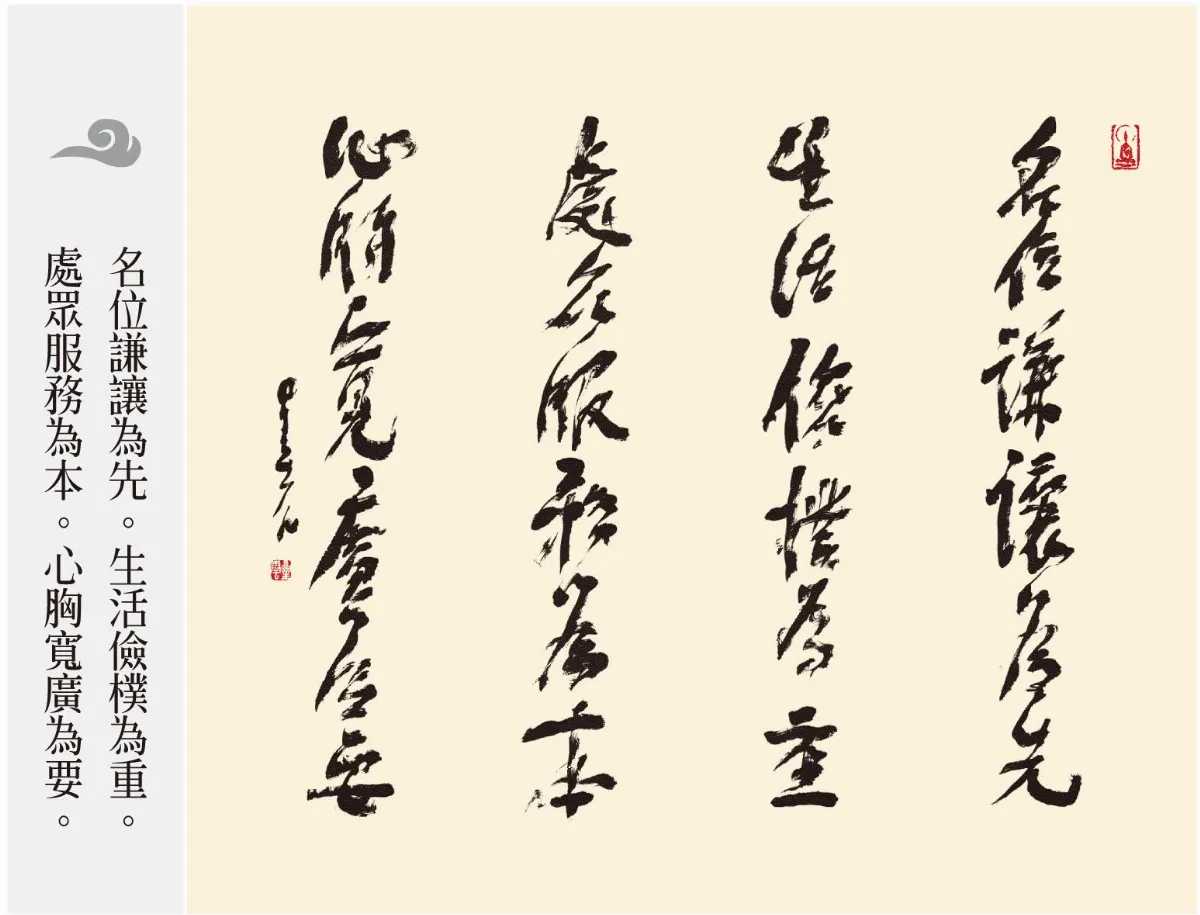 名位謙讓為先
生活儉樸為重
處眾服務為本
心胸寬廣為要
星雲
名位謙讓為先。生活儉樸為重。
處眾服務為本。心胸寬廣為要。